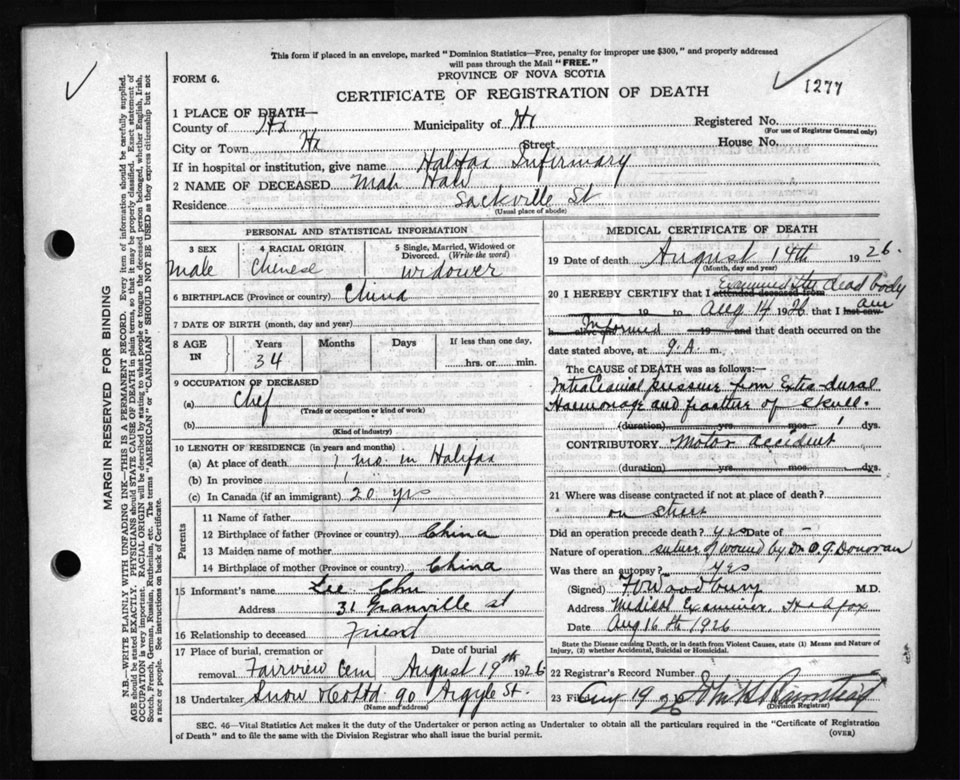 This form if placed in an envelope, marked "Dominion Statistics—Free, penalty for improper use $300," and properly addressed
will pass through the Mail "FREE."
FORM 6.
PROVINCE OF NOVA SCOTIA
CERTIFICATE OF REGISTRATION OF DEATH
1277
1 PLACE OF DEATH—
County of Hx Municipality of Hx Registered No.
(For use of Registrar General only)
City or Town Hx Street House No.
If in hospital or institution, give name Halifax Infirmary
2 NAME OF DECEASED Mah Haw
Residence Sackville St
(Usual place of abode)
PERSONAL AND STATISTICAL INFORMATION
3 SEX 4 RACIAL ORIGIN 5 Single, Married, Widowed or Divorced. (Write the word)
Male Chinese widower
6 BIRTHPLACE (Province or country) China
7 DATE OF BIRTH (month, day and year)
8 AGE IN Years Months Days If less than one day,
34 hrs. or min.
9 OCCUPATION OF DECEASED
(a) Chef
(Trade or occupation or kind of work)
(b)
(Kind of industry)
10 LENGTH OF RESIDENCE (in years and months)
(a) At place of death 1 mo. in Halifax
(b) In province
(c) In Canada (if an immigrant) 20 yrs
Parents
11 Name of father
12 Birthplace of father (Province or country) China
13 Maiden name of mother
14 Birthplace of mother (Province or country) China
15 Informant's name Lee Chu
Address 31 Granville st
16 Relationship to deceased Friend
17 Place of burial, cremation or removal Fairview Cem Date of burial August 19th 1926
18 Undertaker Snow & Co Ltd 90 Argyle St.
(Name and address)
MEDICAL CERTIFICATE OF DEATH
19 Date of death August 14th 1926.
(Month, day and year)
20 I HEREBY CERTIFY that I attended deceased from Examined the dead body
19 to Aug 14 1926 that I last saw am
h alive on Informed 19 and that death occurred on the
date stated above, at 9.A. m.
The CAUSE of DEATH was as follows:—
Intracranial pressure from Extra-dural
Haemorrage and fracture of skull.
(duration) yrs. mos. dys.
CONTRIBUTORY Motor accident
(duration) yrs. mos. dys.
21 Where was disease contracted if not at place of death?
on street
Did an operation precede death? yes Date of
Nature of operation suture of wound by Dr O.G. Donovan
Was there an autopsy? yes
(Signed) F.V. Woodbury M.D.
Address Medical Examiner, Halifax
Date Aug 16th 1926
State the Disease causing Death, or in death from Violent Causes, state (1) Means and Nature of
Injury, (2) whether Accidental, Suicidal or Homicidal.
22 Registrar's Record Number
23 Filed Aug 19 26
(Division Registrar)
SEC. 46—Vital Statistics Act makes it the duty of the Undertaker or person acting as Undertaker to obtain all the particulars required in the "Certificate of Registration
of Death" and to file the same with the Division Registrar who shall issue the burial permit.
(OVER)
MARGIN RESERVED FOR BINDING
N.B.—WRITE PLAINLY WITH UNFADING INK—THIS IS A PERMANENT RECORD. Every item of information should be carefully supplied.
AGE should be stated EXACTLY. PHYSICIANS should STATE CAUSE OF DEATH in plain terms, so that it may be properly classified. Exact statement of
OCCUPATION is very important. RACIAL ORIGIN will be described by stating to what people or tongue the deceased person belonged, whether English, Irish,
Scotch, French, German, Russian, Ruthenian, etc. The terms "AMERICAN" or "CANADIAN" SHOULD NOT BE USED as they express citizenship but not
a race or people. See instructions on back of Certificate.